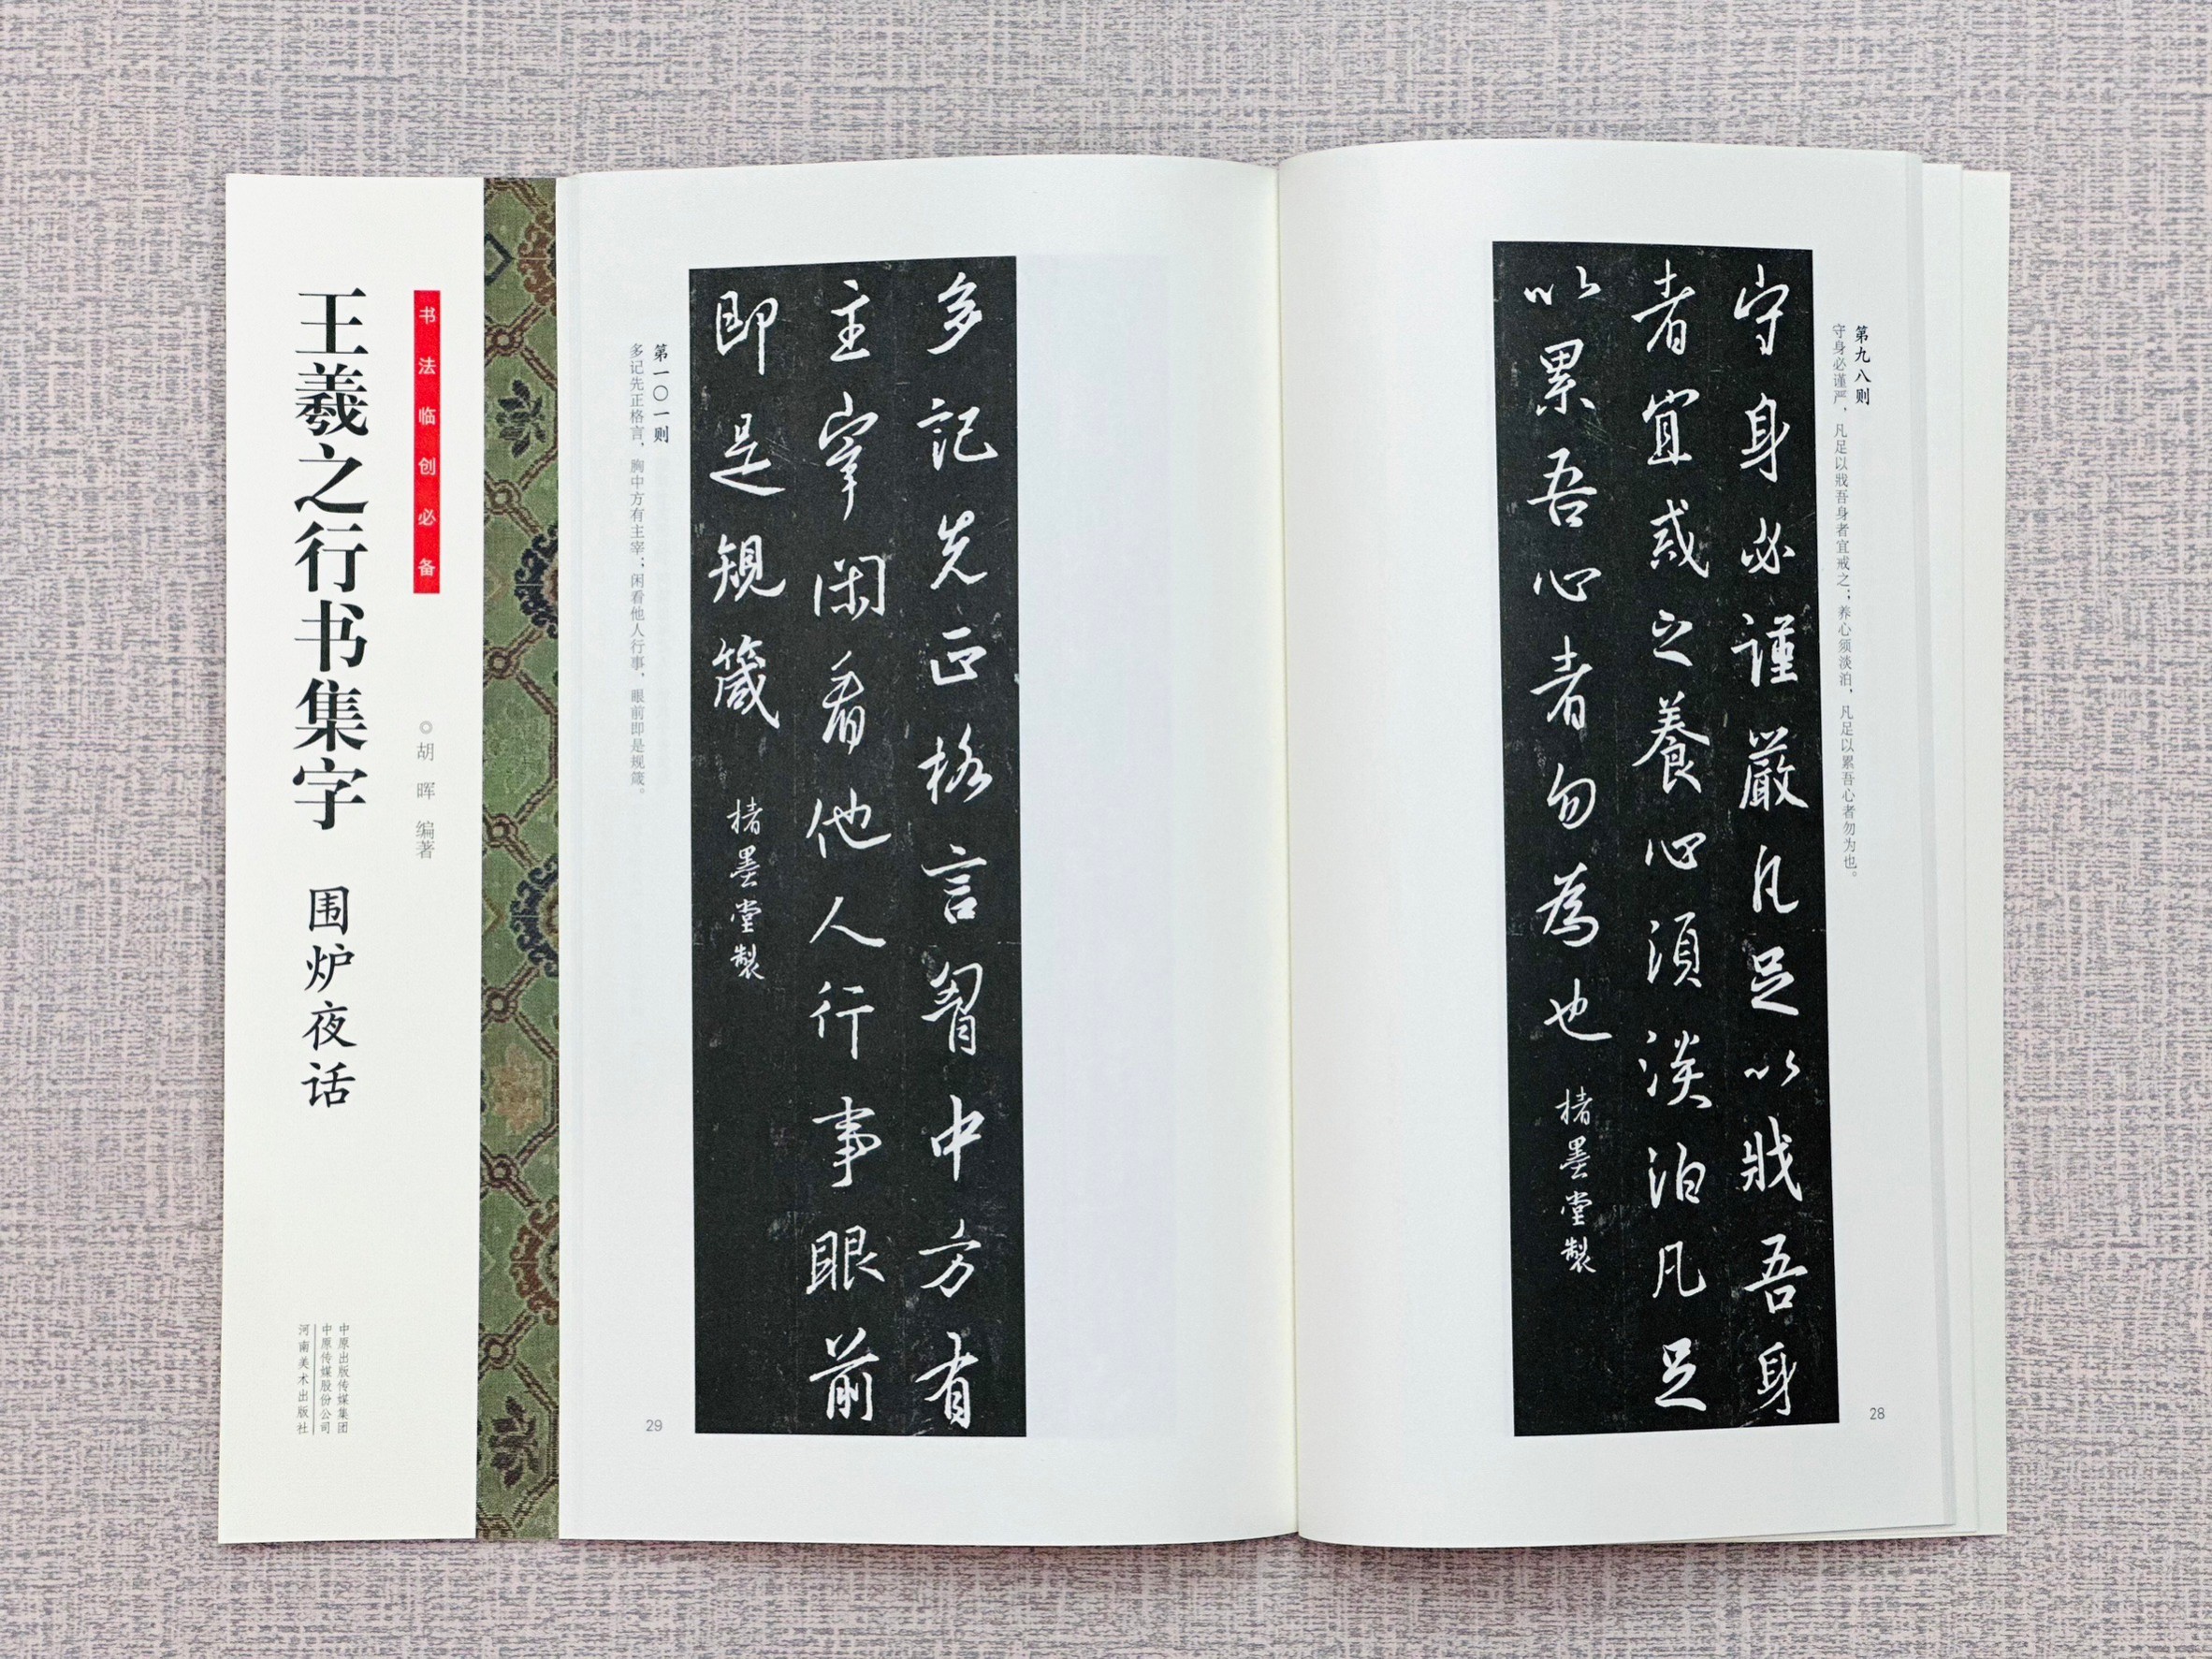 第九八则
守身必谨严，凡足以戕吾身者宜戒之；养心须淡泊，凡足以累吾心者勿为也。
守身必謹嚴凡足以戕吾身
者宜戒之養心須淡泊凡足
以累吾心者勿為也
楮墨堂製
28
多記先正格言胷中方有
主宰閑看他人行事眼前
即是規箴
楮墨堂製
第一〇一则
多记先正格言，胸中方有主宰；闲看他人行事，眼前即是规箴。
29
书法临创必备
胡晖 编著
王羲之行书集字 围炉夜话
中原出版传媒集团
中原传媒股份公司
河南美术出版社